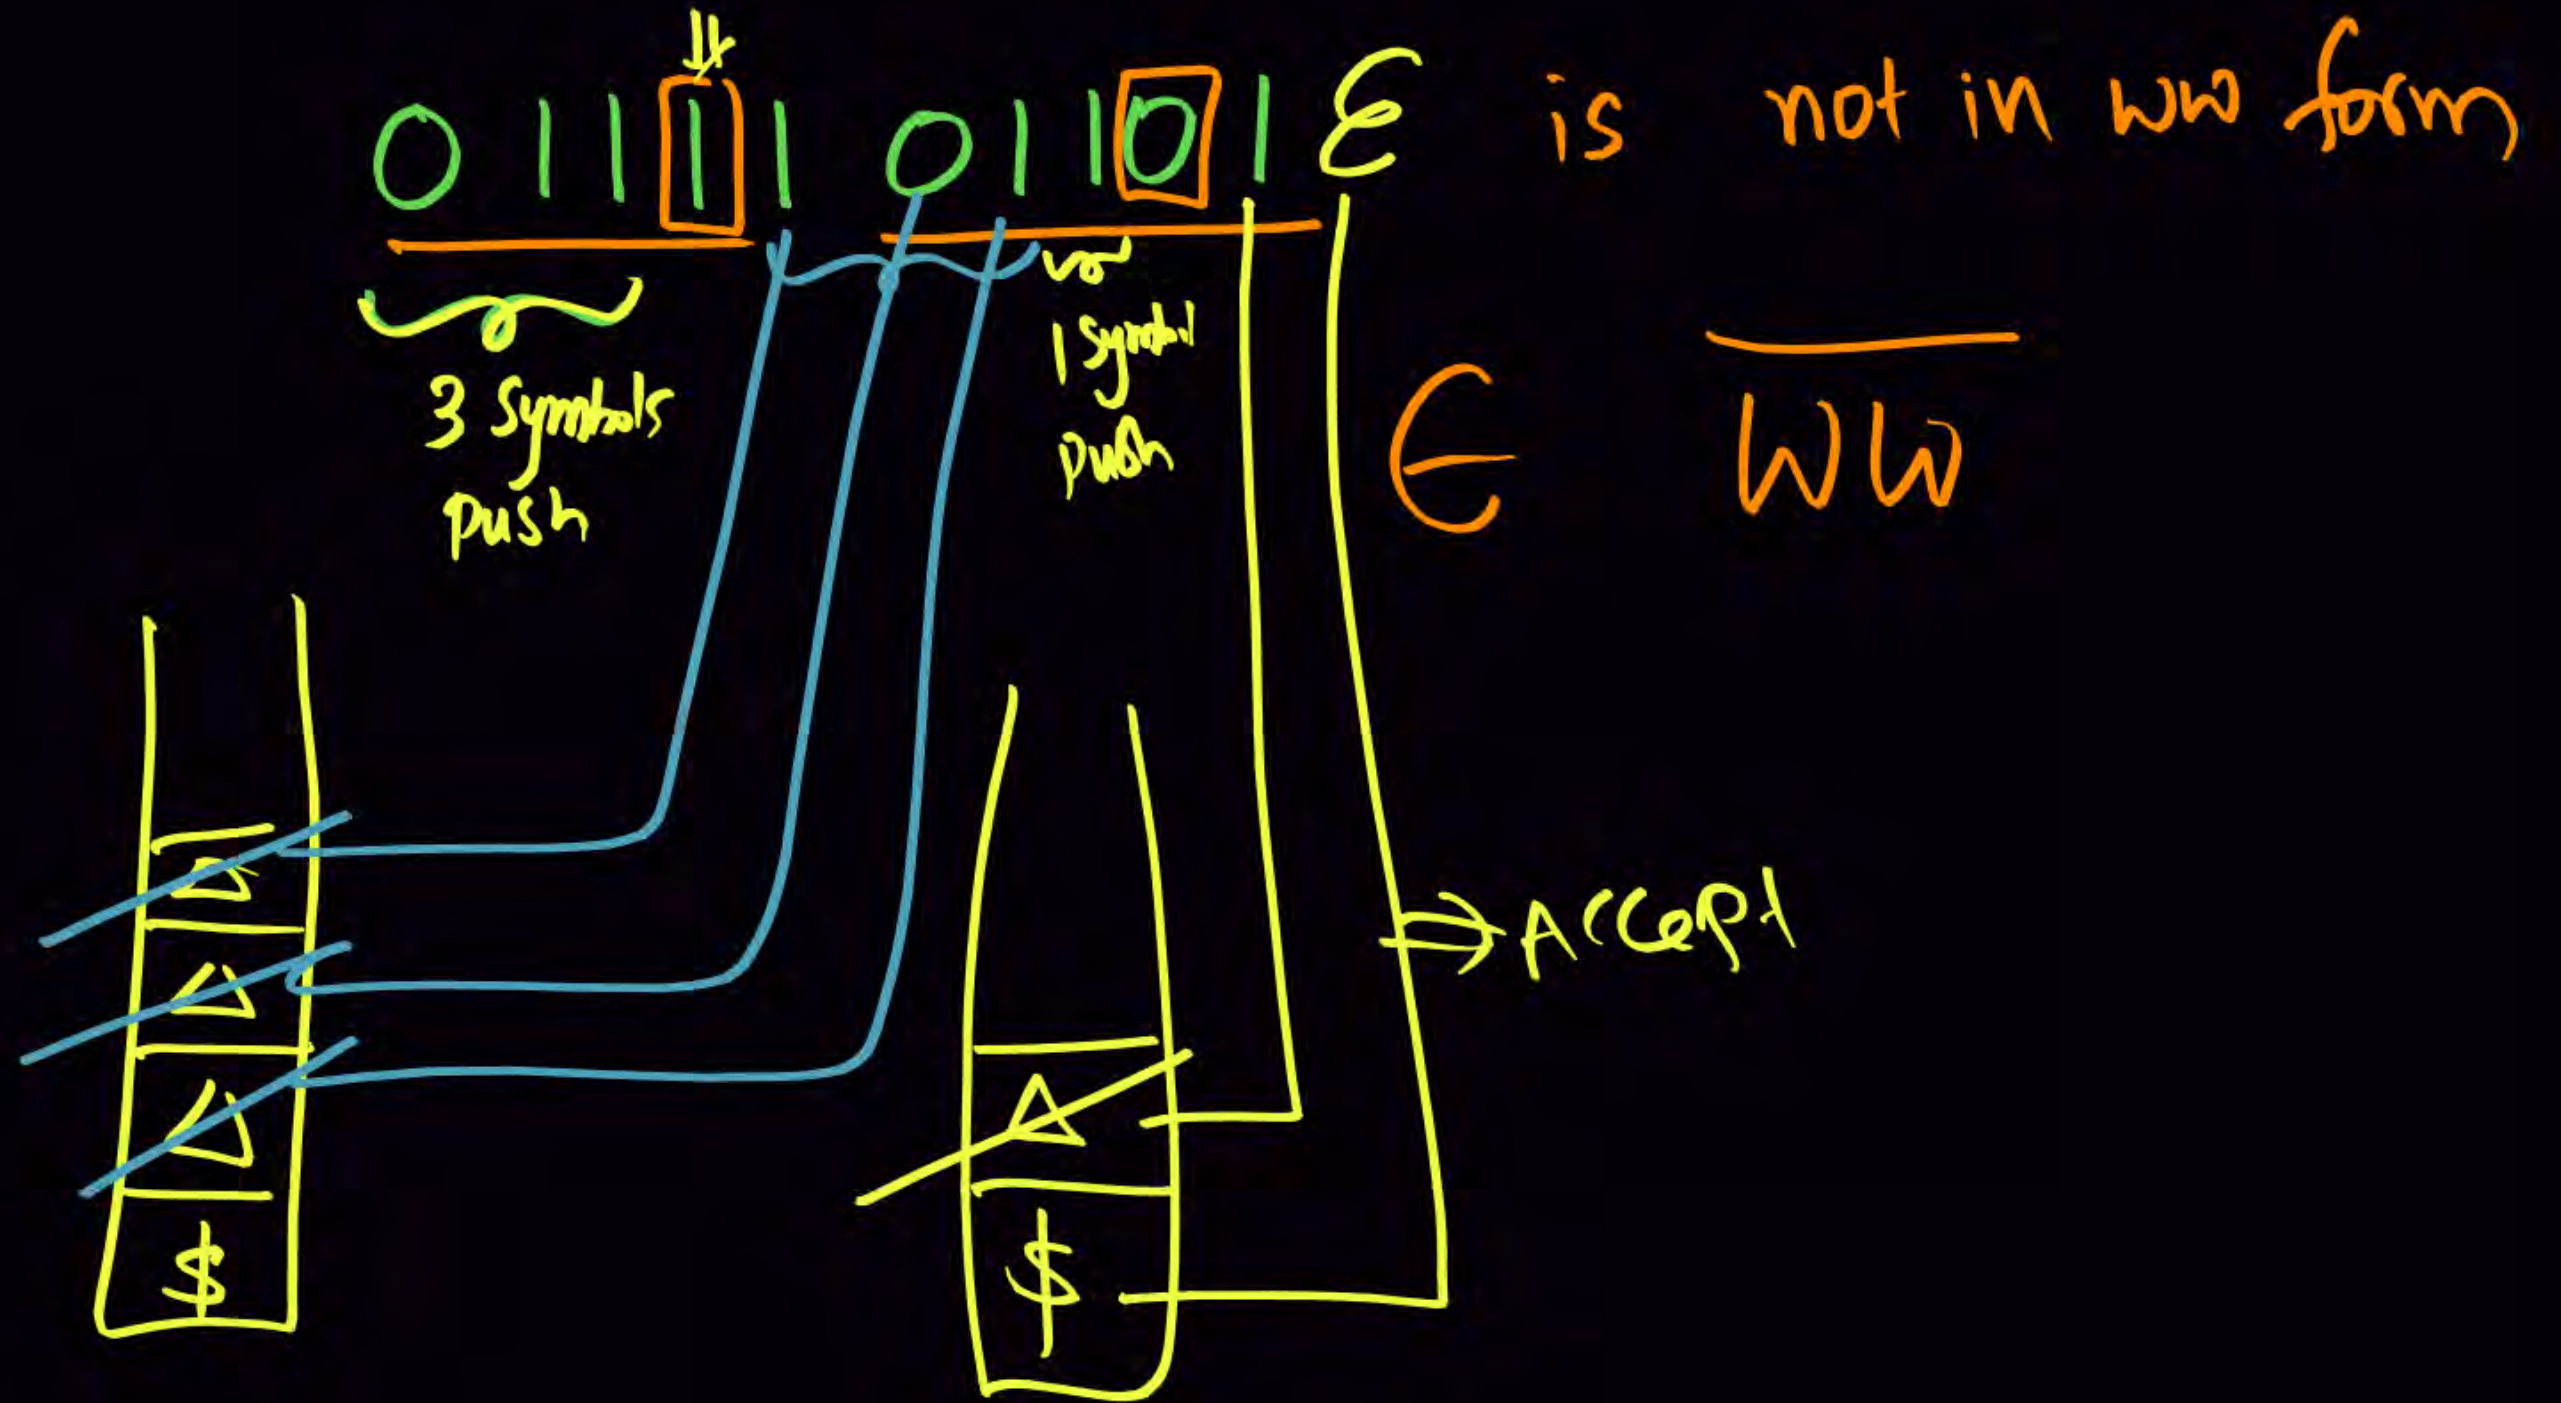 0 1 1 1 1 0 1 1 0 1 ε is not in ww form,
3 Symbols
push
1 Symbol
push
∈ WW
Accept
Δ
Δ
Δ
$
Δ
$